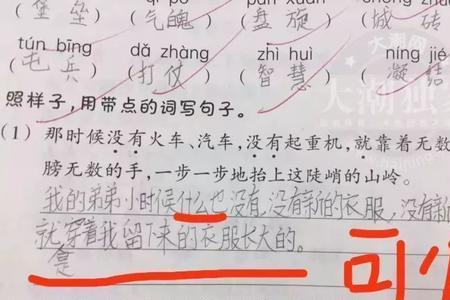 (堡垒)(气魄)(盘旋)(城砖
tún bīng dǎ zhàng zhì huì níng jié
(屯兵)(打仗)(智慧)(凝结
照样子，用带点的词写句子。
(1) 那时候没有火车、汽车，没有起重机，就靠着无数
膀无数的手，一步一步地抬上这陡峭的山岭。
我的弟弟小时候什么也没有，没有新的衣服，没有新
就穿着我留下来的衣服长大的。
是
大潮网
大潮独家